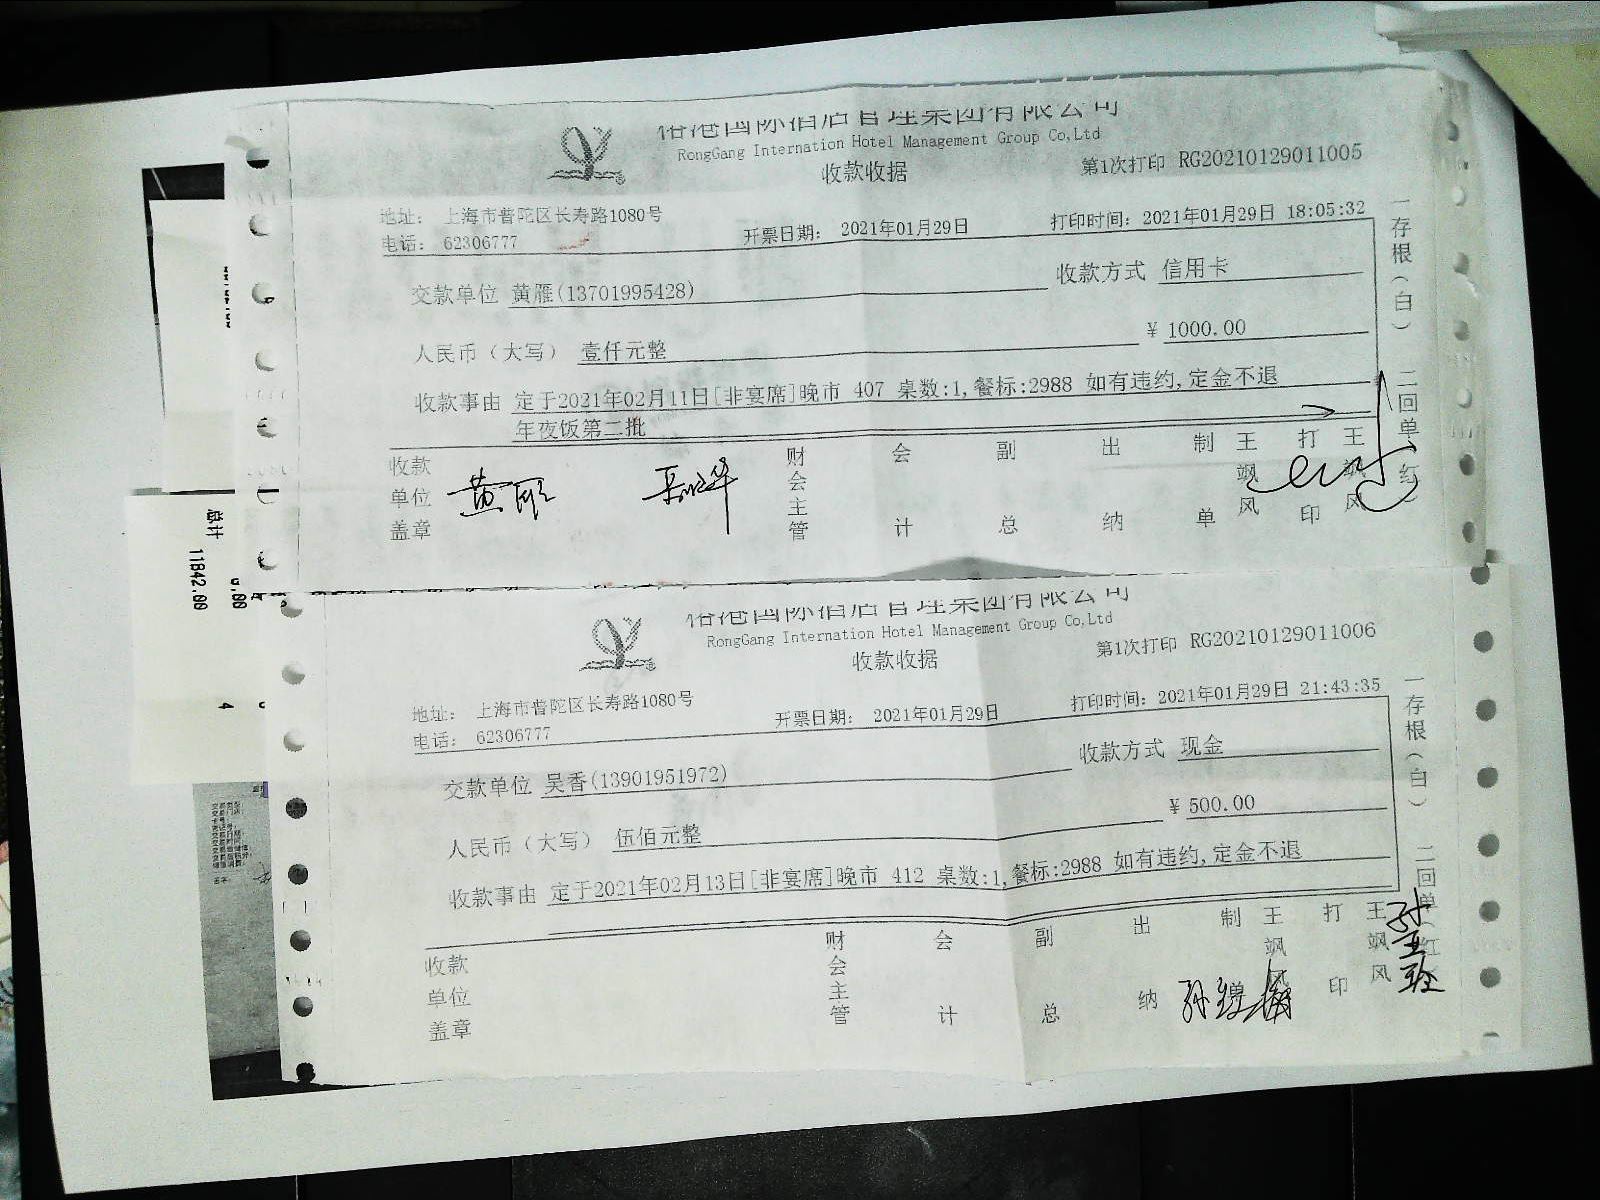 榕港国际酒店管理集团有限公司
RongGang Internation Hotel Management Group Co,Ltd
收款收据
第1次打印 RG20210129011005
地址： 上海市普陀区长寿路1080号
电话： 62306777
开票日期： 2021年01月29日
打印时间：2021年01月29日 18:05:32
交款单位 黄雁(13701995428)
收款方式 信用卡
人民币（大写） 壹仟元整
¥ 1000.00
收款事由 定于2021年02月11日[非宴席]晚市 407 桌数:1,餐标:2988 如有违约,定金不退
年夜饭第二批
收款单位盖章
黄雁
财会主管
会计
副总
出纳
制单
王飒风
打印
王飒风
一存根（白）
二回单（红）
榕港国际酒店管理集团有限公司
RongGang Internation Hotel Management Group Co,Ltd
收款收据
第1次打印 RG20210129011006
地址： 上海市普陀区长寿路1080号
电话： 62306777
开票日期： 2021年01月29日
打印时间：2021年01月29日 21:43:35
交款单位 吴香(13901951972)
收款方式 现金
人民币（大写） 伍佰元整
¥ 500.00
收款事由 定于2021年02月13日[非宴席]晚市 412 桌数:1,餐标:2988 如有违约,定金不退
收款单位盖章
财会主管
会计
副总
出纳
制单
王飒风
打印
王飒风
一存根（白）
二回单（红）
总计
11842.00
0.00
4